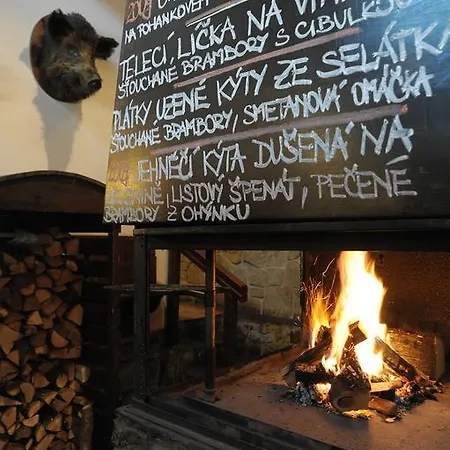 NA POHANKOVÉM
TELECÍ LÍČKA NA VÍN
ŠŤOUCHANÉ BRAMBORY S CIBULKOU
PLÁTKY UZENÉ KÝTY ZE SELÁTKA
ŠŤOUCHANÉ BRAMBORY, SMETANOVÁ OMÁČKA
JEHNĚČÍ KÝTA DUŠENÁ NA
LISTOVÝ ŠPENÁT, PEČENÉ
BRAMBORY Z OHÝNKU